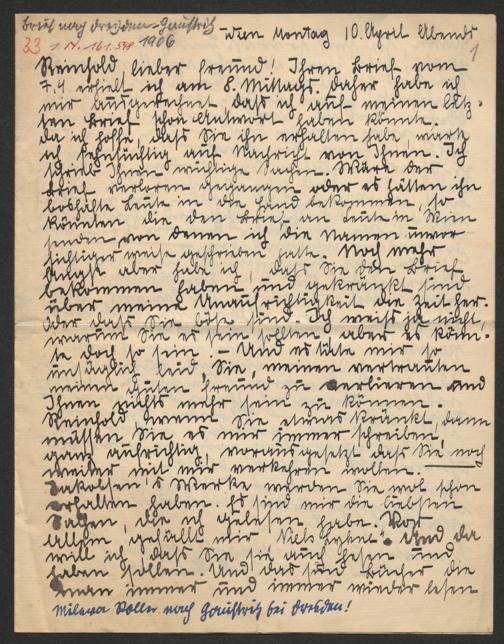 Brief nach Dresden-Gaustritz
33 I.N. 161.548 1906
Wien Montag 10. April Abends
1
Reinhold lieber Freund! Ihren Brief vom
7.4 erhielt ich am 8. Mittags. Daher habe ich
mir ausgerechnet daß ich auf meinen letz-
ten Brief schon Antwort haben könnte.
Da ich hoffe, daß Sie ihn erhalten habe, warte
ich sehnsüchtig auf Nachricht von Ihnen. Ich
schrieb Ihnen wichtige Sachen. Wäre der
Brief verloren gegangen oder es hätten ihn
boshafte Leute in die Hand bekommen, so
könnten die den Brief an Leute in Wien
senden von denen ich die Namen unvor
sichtiger weise geschrieben hatte. Noch mehr
Angst aber habe ich, daß Sie den Brief
bekommen haben und gekränkt sind
über meine Unaufrichtigkeit die Zeit her.
Oder daß Sie böse sind. Ich weiß ja nicht,
warum Sie es sein sollten aber es könn-
te doch so sein. – Und es täte mir so
unsäglich leid, Sie, meinen vertrauten
meinen guten Freund zu verlieren und
Ihnen nichts mehr sein zu können.
Reinhold wenn Sie etwas kränkt, dann
müssen Sie es mir immer schreiben,
ganz aufrichtig, vorausgesetzt daß Sie noch
weiter mit mir verkehren wollen.
Jakobsen's Werke werden Sie wol schon
erhalten haben. Es sind mir die liebsten
Sachen, die ich gelesen habe. Vor
allem gefällt mir Niels Lyhne. Und da
will ich, daß Sie sie auch lesen und
haben sollen. Und das sind Bücher die
man immer und immer wieder lesen
Mileva Roller nach Gaustritz bei Dresden!